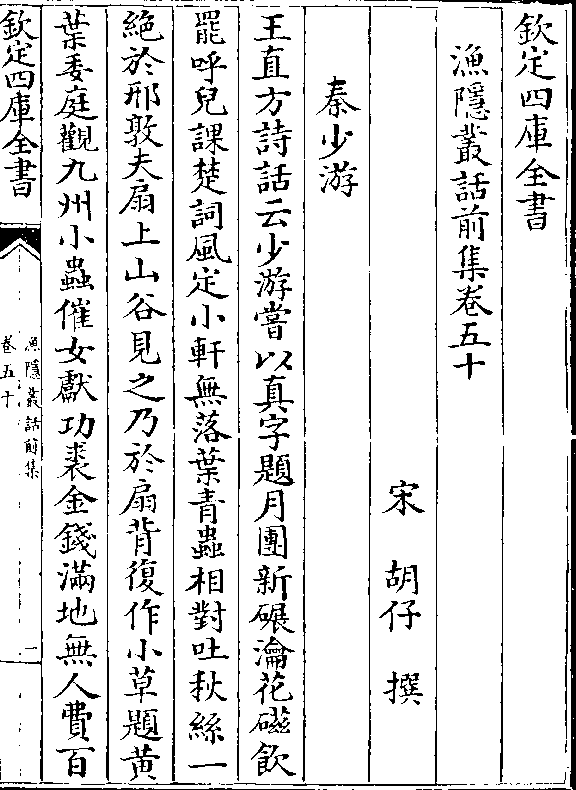 欽定四庫全書
漁隱叢話前集卷五十
宋 胡仔 撰
秦少游
王直方詩話云少游嘗以真字題月團新碾瀹花磁飲
罷呼兒課楚詞風定小軒無落葉青蟲相對吐秋絲一
絶於邢敦夫扇上山谷見之乃於扇背復作小草題黄
葉委庭觀九州小蟲催女獻功裘金錢滿地無人費百
欽定四庫全書
漁隱叢話前集
卷五十
一